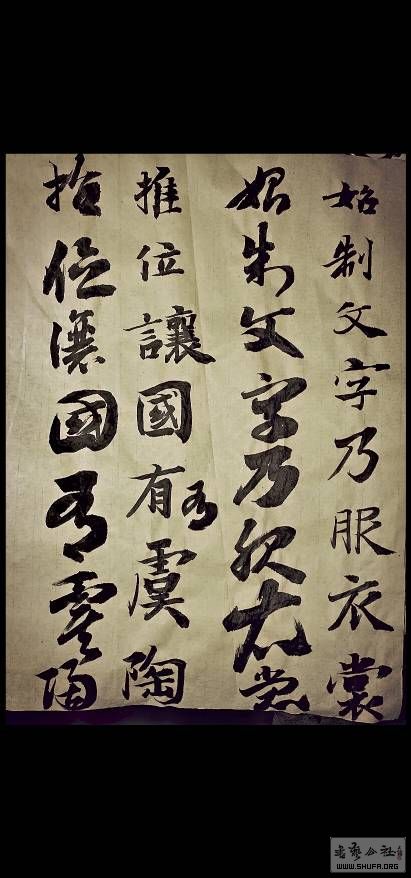 始制文字乃服衣裳
始制文字乃服衣裳
推位讓國有虞陶
有
推位讓國有虞陶
书艺公社
WWW.SHUFA.ORG